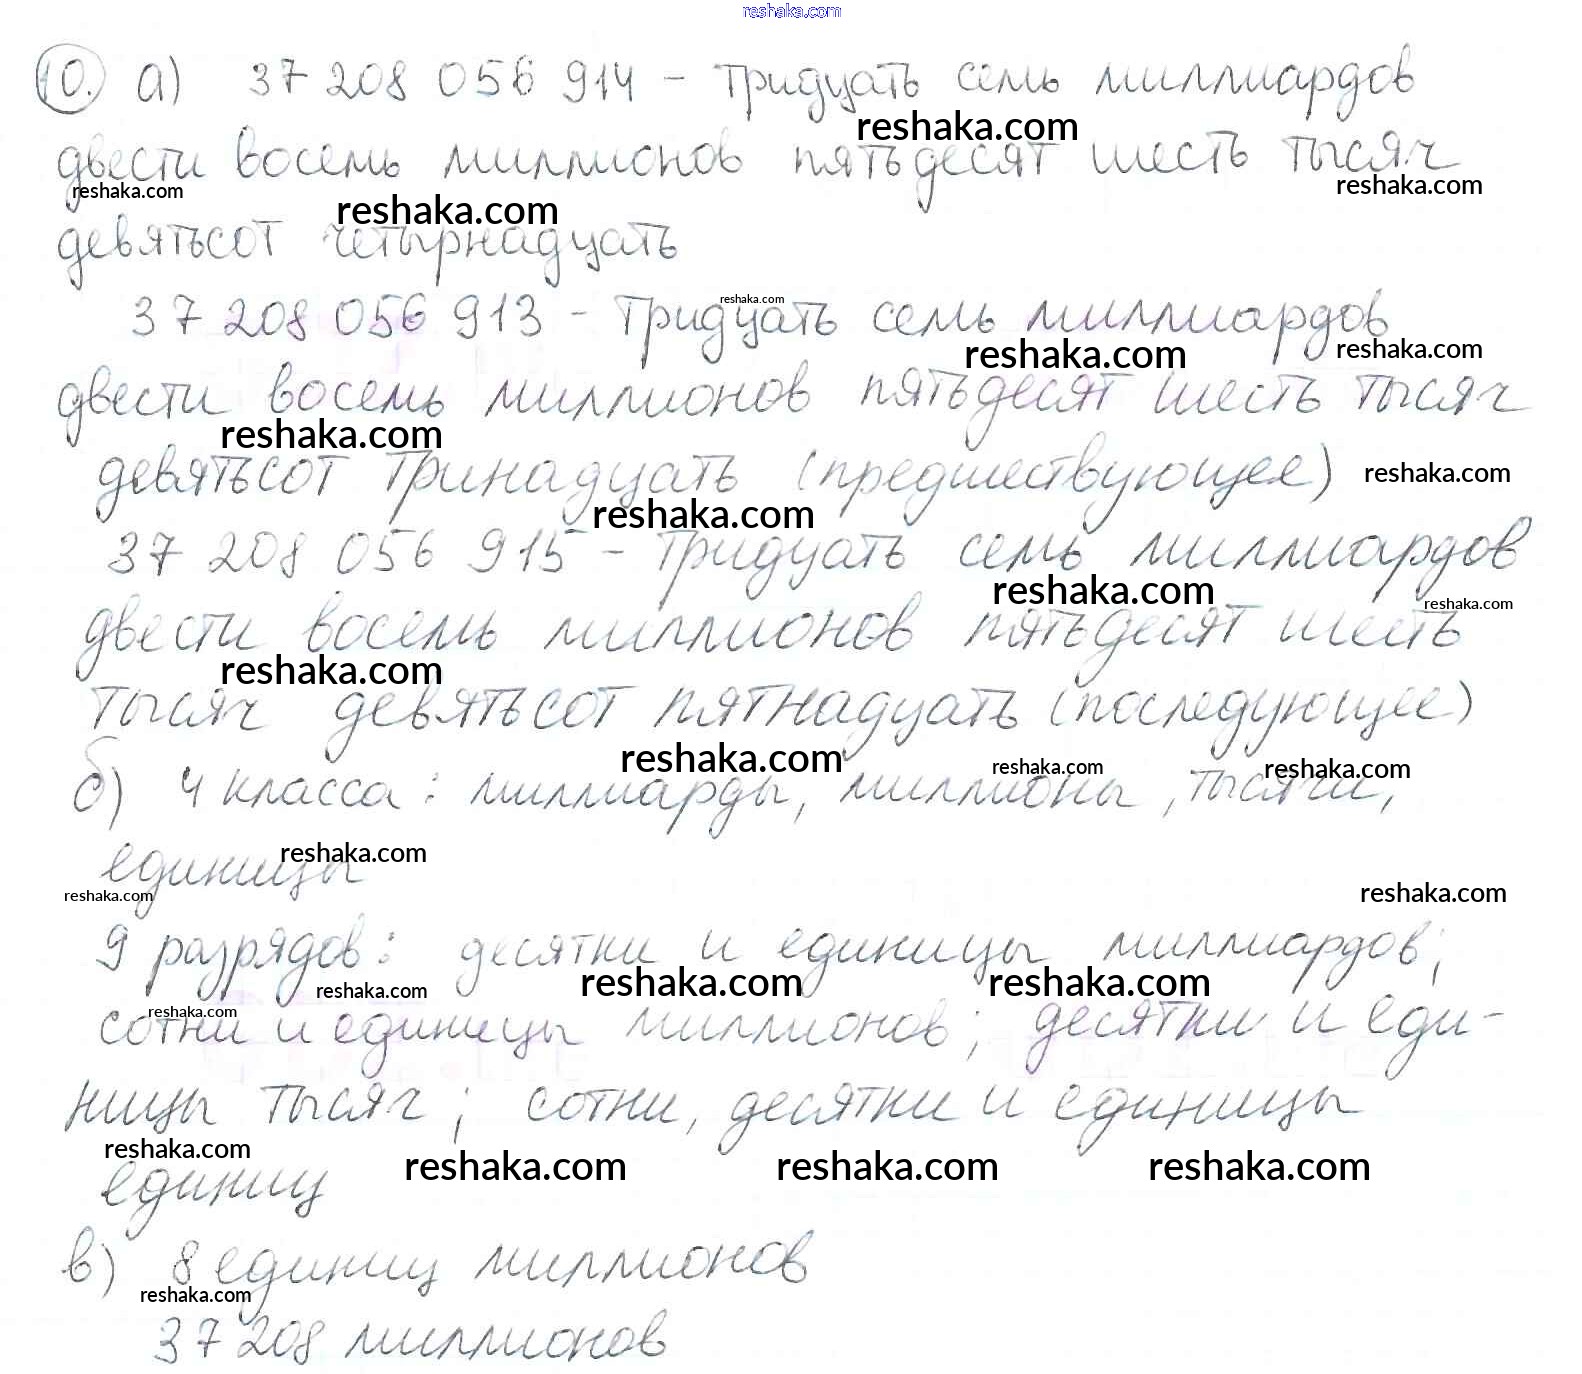 reshaka.com
10. а) 37 208 056 914 – тридцать семь миллиардов
reshaka.com
двести восемь миллионов пятьдесят шесть тысяч
reshaka.com reshaka.com
reshaka.com
девятьсот четырнадцать
reshaka.com
37 208 056 913 – Тридцать семь миллиардов
reshaka.com reshaka.com
двести восемь миллионов пятьдесят шесть тысяч
reshaka.com
девятьсот тринадцать (предшествующее) reshaka.com
reshaka.com
37 208 056 915 – тридцать семь миллиардов
reshaka.com reshaka.com
двести восемь миллионов пятьдесят шесть
reshaka.com
тысяч девятьсот пятнадцать (последующее)
reshaka.com reshaka.com reshaka.com
б) 4 класса: миллиарды, миллионы, тысячи,
reshaka.com
единицы
reshaka.com reshaka.com
9 разрядов: десятки и единицы миллиардов;
reshaka.com reshaka.com reshaka.com
reshaka.com
сотни и единицы миллионов; десятки и еди-
ницы тысяч; сотни, десятки и единицы
reshaka.com reshaka.com reshaka.com reshaka.com
единиц
в) 8 единиц миллионов
reshaka.com
37 208 миллионов